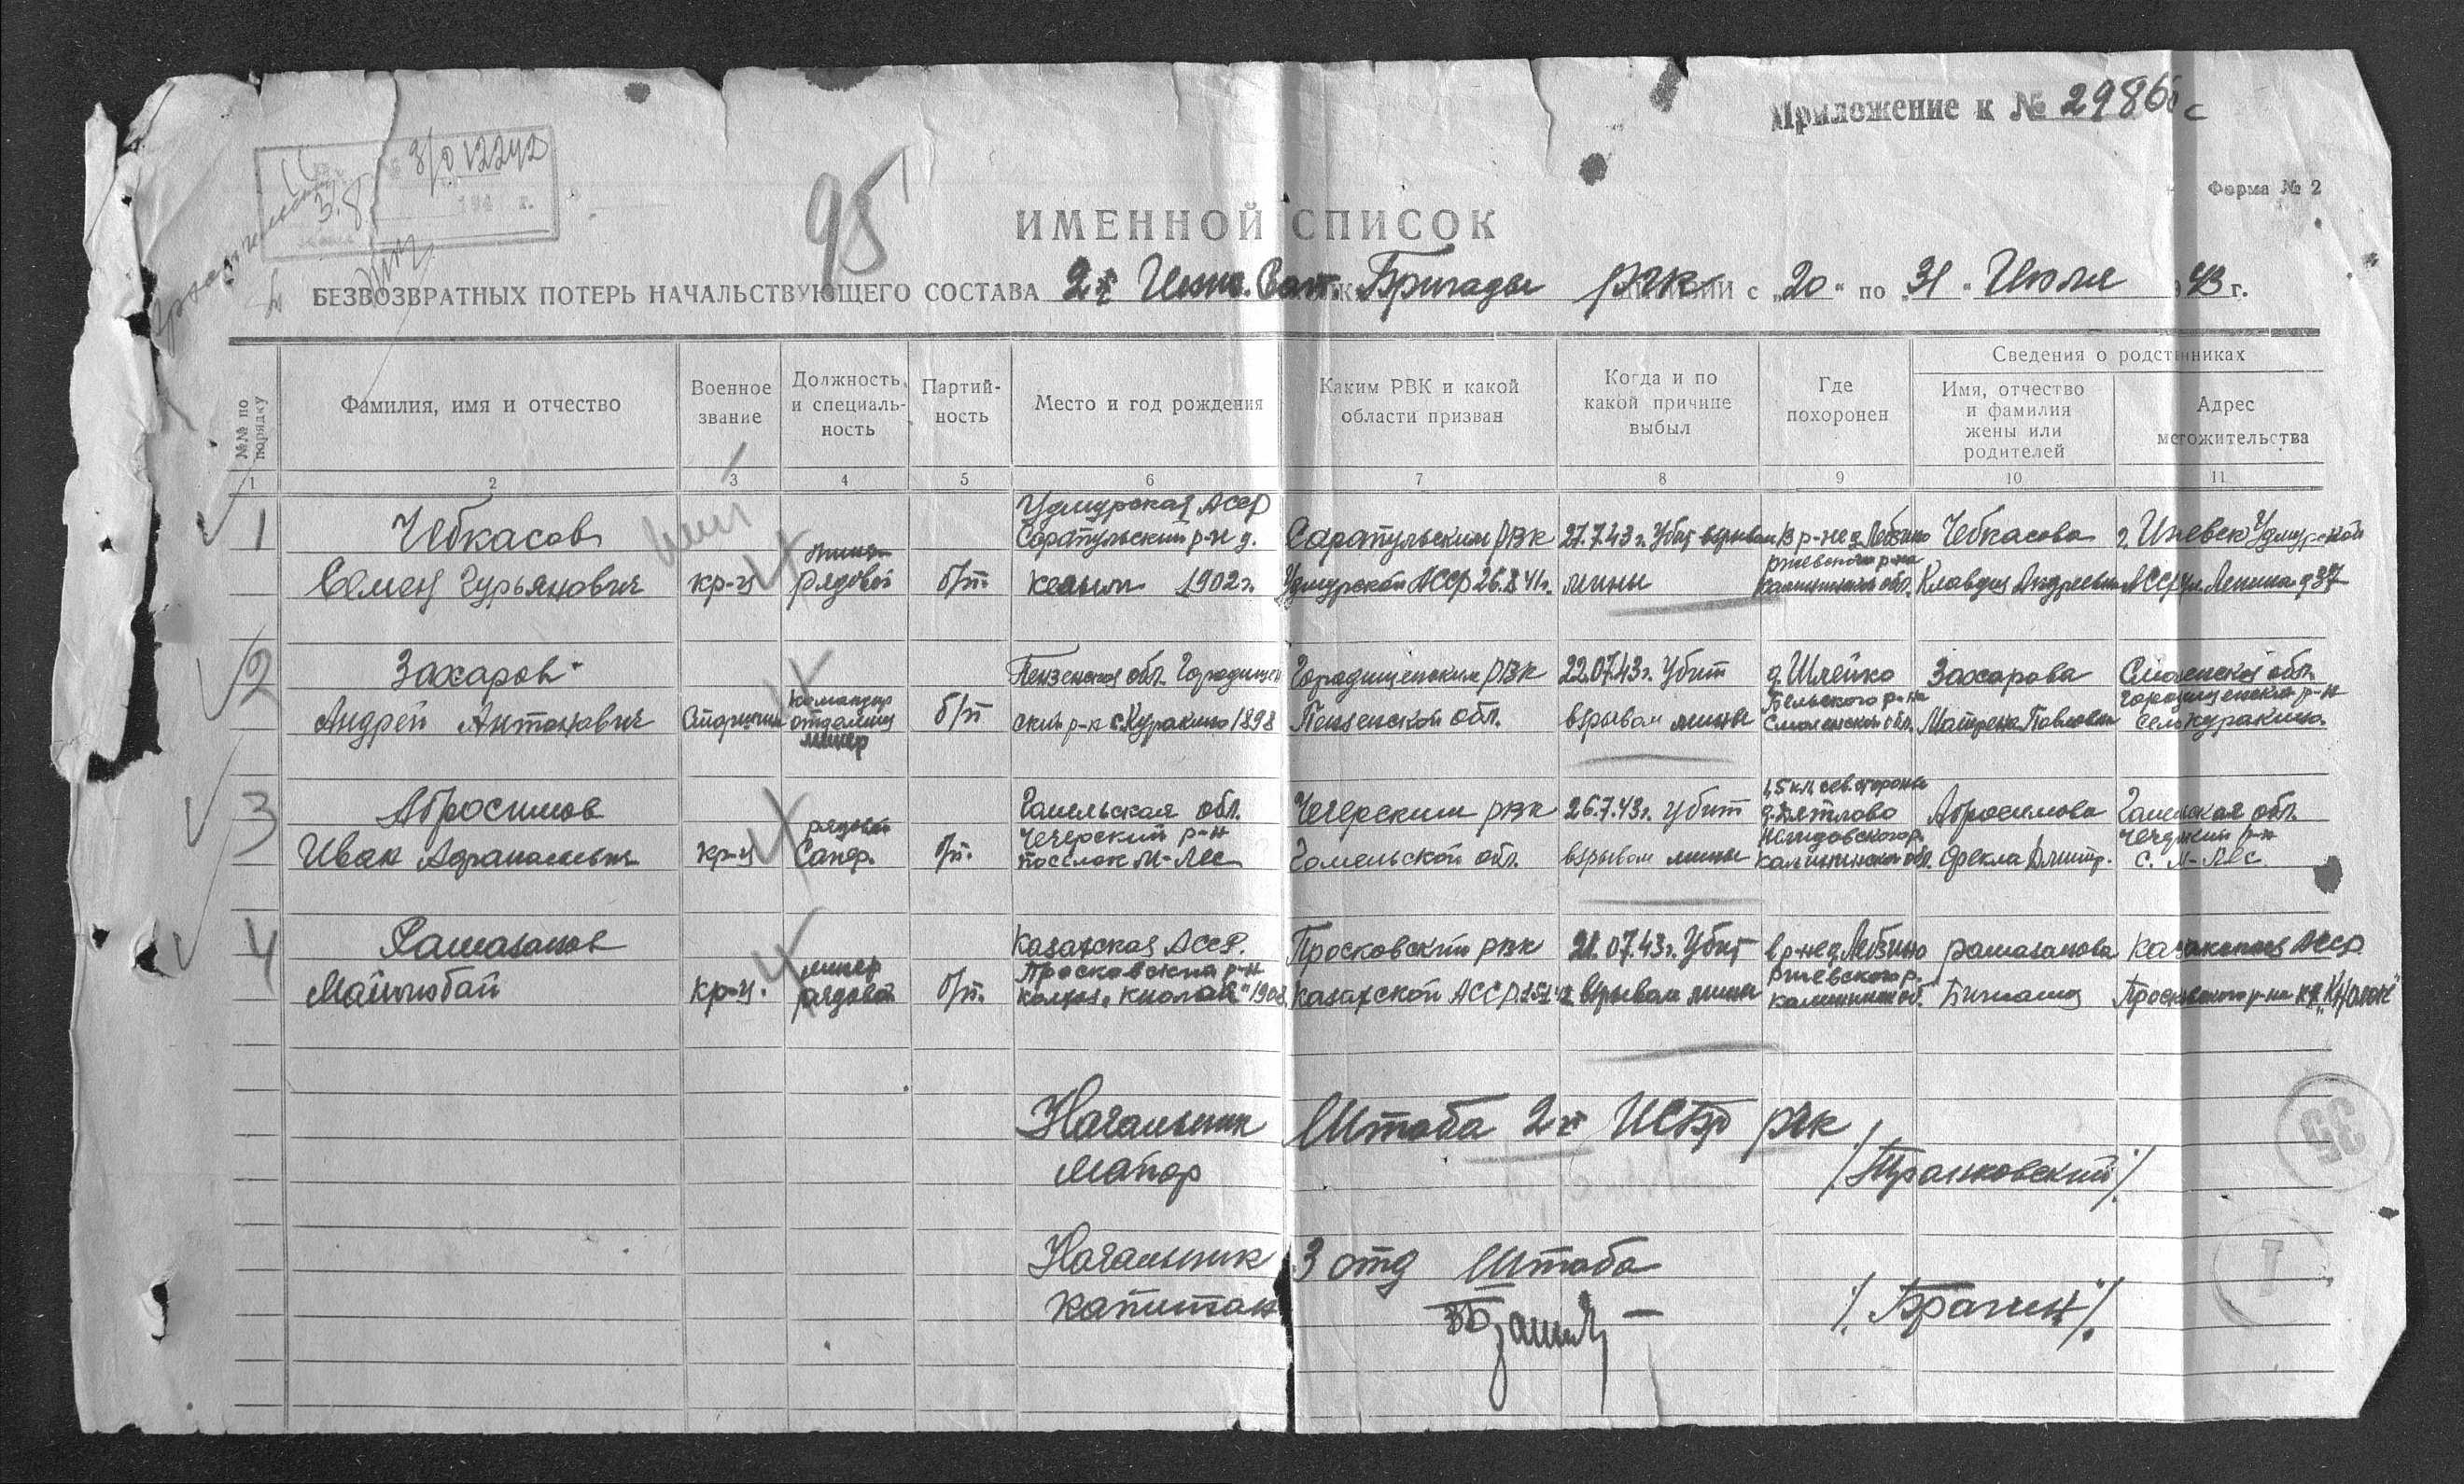 Приложение к № 2986с
Форма № 2
3/012242
194 г.
3.8
95
ИМЕННОЙ СПИСОК
БЕЗВОЗВРАТНЫХ ПОТЕРЬ НАЧАЛЬСТВУЮЩЕГО СОСТАВА 2й Инж. Сап. Бригады РГК с „20“ по „31“ Июля 43 г.
№№ по порядку
Фамилия, имя и отчество
Военное звание
Должность и специаль-ность
Партий-ность
Место и год рождения
Каким РВК и какой области призван
Когда и по какой причине выбыл
Где похоронен
Сведения о родственниках
Имя, отчество и фамилия жены или родителей
Адрес местожительства
1 2 3 4 5 6 7 8 9 10 11
1 Чебкасов Семен Гурьянович кр-ц рядовой б/п. Удмурская АССР Сарапульский р-н д. 1902 г. Сарапульским РВК Удмурской АССР 26.8.41г. 27.7.43 г. Убит взрывом мины в р-не д. Лебзино Ржевского р-на Калининской обл. Чебкасова Клавдия Андреевна г. Ижевск Удмурской АССР ул. Ленина д 37
2 Захаров Андрей Антонович Старшина командир отделения минер б/п Пензенская обл. Городищенский р-н с. Куракино 1898 Городищенским РВК Пензенской обл. 22.07.43г. Убит взрывом мины д. Шлейко Бельского р-на Смоленской обл. Захарова Матрена Павловна обл. Городищенский р-н село Куракино.
3 Абросимов Иван кр-ц рядовой Сапер. б/п. Гомельская обл. Чечерский р-н поселок М-Лес Чечерским РВК Гомельской обл. 26.7.43г. убит взрывом мины 1,5 км. сев. стороны д. Дятлово Нелидовского р. Калининской обл. Абросимова Фекла Дмитр. Гомельская обл. Чечерский р-н с. М-Лес
4 Рамазанов Майлюбай кр-ц. минер рядовой б/п. Казахская АССР. р-н колхоз 1908 Просковским РВК Казахской АССР 21.07.43г. Убит взрывом мины в р-не д. Лебзино Ржевского р. Калининской об. Рамазанова АССР
Начальник Штаба 2й ИСБр РГК
Майор /Транковский/
Начальник 3 отд Штаба
Капитан /Брагин/
35
1